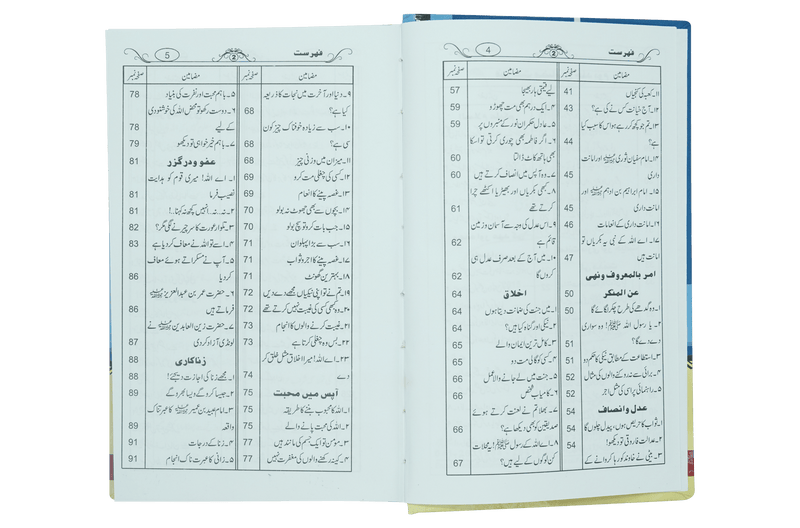 فہرست
2
4
مضامین
صفحہ نمبر
۱۱۔ کعبہ کی کنجیاں
41
۱۲۔ آج خیانت کس نے کی ہے؟
42
۱۳۔ تم جو کچھ کر رہے ہو اس کا سبب کیا
ہے؟
44
۱۴۔ امام سفیان ثوری رحمۃ اللہ علیہ اور امانت
داری
45
۱۵۔ امام ابراہیم بن ادہم رحمۃ اللہ علیہ اور
امانت داری
45
۱۶۔ امانت داری کے انعامات
46
۱۷۔ اے اللہ کے نبی یہ بکریاں تو
امانت ہیں
47
امر بالمعروف ونہی
عن المنکر
50
۱۔ وہ گدھے کی طرح چکر لگائے گا
50
۲۔ یا رسول اللہ ﷺ! وہ سواری
دے دے گا؟
51
۳۔ استطاعت کے مطابق نیکی کا حکم دو
51
۴۔ برائی سے نہ روکنے والوں کی مثال
52
۵۔ راہنمائی پر اسی کی مثل اجر
52
عدل وانصاف
54
۱۔ ثواب کا حریص ہوں، پیدل چلوں گا
54
۲۔ عدالت فاروقی تو دیکھو!
54
۳۔ بیٹی نے خاوند کو رہا کروانے کے
مضامین
صفحہ نمبر
لیے قیمتی ہار بھیجا
57
۴۔ ایک درہم بھی مت چھوڑو
59
۵۔ عادل حکمران نور کے منبروں پر
59
۶۔ اگر فاطمہ بھی چوری کرتی تو اس کا
بھی ہاتھ کاٹ ڈالتا
60
۷۔ وہ آپس میں انصاف کرتے ہیں
60
۸۔ کبھی بکریاں اور بھیڑیا اکٹھے چرا
کرتے تھے
61
۹۔ اس عدل کی وجہ سے آسمان و زمین
قائم ہے
62
۱۰۔ میں آج کے بعد صرف عدل ہی
کروں گا
62
اخلاق
64
۱۔ میں جنت کی ضمانت دیتا ہوں
64
۲۔ نیکی اور گناہ کیا ہیں؟
64
۳۔ کامل ترین ایمان والے
65
۴۔ کسی کو گالی مت دو
65
۵۔ جنت میں لے جانے والا عمل
66
۶۔ کامیاب شخص
66
۷۔ بھلا تم نے لعنت کرتے ہوئے
صدیقین کو بھی دیکھا ہے؟
66
۸۔ اے اللہ کے رسول ﷺ! یہ محلات
کن لوگوں کے لیے ہیں؟
67
فہرست
2
5
مضامین
صفحہ نمبر
۹۔ دنیا اور آخرت میں نجات کا ذریعہ
کیا ہے؟
68
۱۰۔ سب سے زیادہ خوفناک چیز کون
سی ہے؟
68
۱۱۔ میزان میں وزنی چیز
68
۱۲۔ کسی کی چغلی مت کرو
69
۱۳۔ غصہ پینے کا انعام
69
۱۴۔ بچوں سے بھی جھوٹ نہ بولو
70
۱۵۔ جب بات کرو تو سچ بولو
70
۱۶۔ سب سے بڑا پہلوان
71
۱۷۔ غصہ پینے کا اجر و ثواب
71
۱۸۔ بہترین گھونٹ
71
۱۹۔ تم نے تو اپنی نیکیاں مجھے دے دیں
72
۲۰۔ وہ کبھی کسی کی غیبت نہیں کرتے تھے
72
۲۱۔ غیبت کرنے والوں کا انجام
73
۲۲۔ بس وہ چغلی کرتا ہے
73
۲۳۔ اے اللہ! میرا اخلاق مثل خلق کر
دے
74
آپس میں محبت
75
۱۔ اللہ کا محبوب بننے کا طریقہ
75
۲۔ اللہ کی محبت پانے والے
75
۳۔ مومن تو ایک جسم کی مانند ہیں
77
۴۔ کینہ رکھنے والوں کی مغفرت نہیں
77
مضامین
صفحہ نمبر
۵۔ باہم محبت اور نفرت کی بنیاد
78
۶۔ دوست رکھو تو محض اللہ کی خوشنودی
کے لیے
78
۷۔ باہم خیر خواہی تو دیکھو
79
عفو ودرگزر
81
۱۔ اے اللہ! میری قوم کو ہدایت
نصیب فرما
81
۲۔ نہ نہ نہ انہیں کچھ نہ کہنا۔!
81
۳۔ تلوار عورت کا سر چیرنے لگی مگر؟
82
۴۔ اسے تو اللہ نے معاف کر دیا ہے
83
۵۔ آپ نے مسکراتے ہوئے معاف
کر دیا
86
۶۔ حضرت عمر بن عبدالعزیز رحمۃ اللہ علیہ
فرماتے ہیں
86
۷۔ حضرت زین العابدین رحمۃ اللہ علیہ نے
لونڈی آزاد کر دی
87
زناکاری
88
۱۔ مجھے زنا کی اجازت دیجئے!
88
۲۔ جیسا کرو گے ویسا بھرو گے
89
۳۔ امام عبید بن عمیر رحمۃ اللہ علیہ کا عبرتناک
واقعہ
89
۴۔ زنا کے درجات
91
۵۔ زانی کا عبرت ناک انجام
91